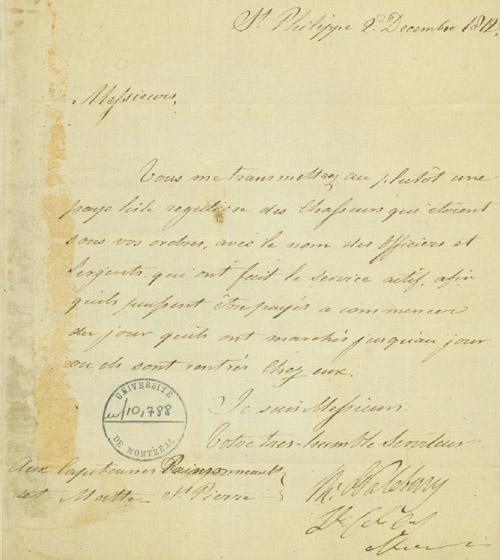 St. Philippe 2. Decembre 1812.
Messieurs,
Vous me transmettrez au plutôt une
paye liste reguliere des Chasseurs qui étoient
sous vos ordres, avec le nom des Officiers et
Sergents qui ont fait le service actif, afin
qu'ils puissent être payés a commencer
du jour qu'ils ont marchés jusqu'au jour
ou ils sont rentrés Chez eux.
Je suis Messieurs
Votre tres-humble Serviteur
UNIVERSITÉ
u/10,788
DE MONTRÉAL
Aux Capitaines
et St. Pierre